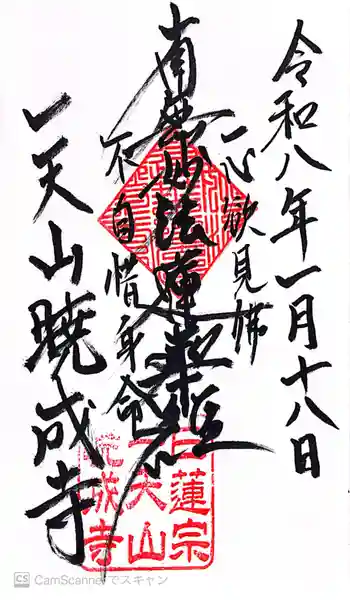 令和八年一月十八日
一心欲見佛
南無妙法蓮華経
不自惜身命
一天山暁成寺
日蓮宗
一天山
暁成寺
CS CamScannerでスキャン